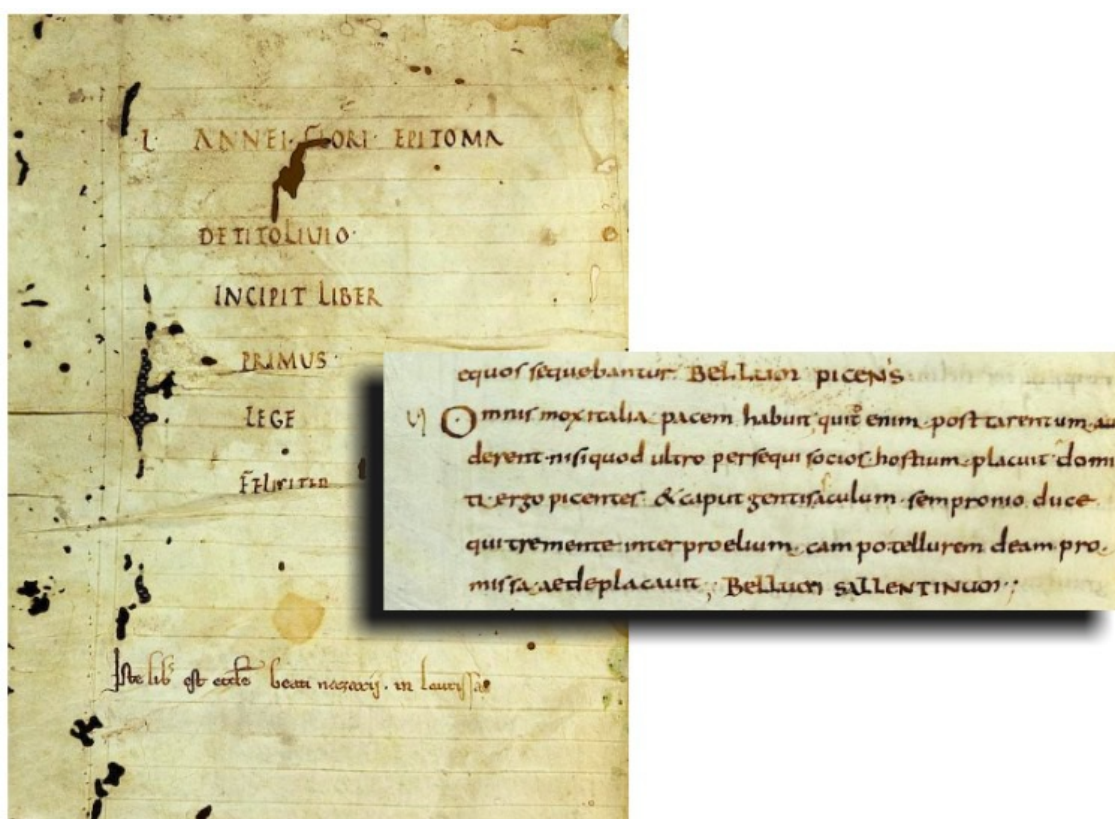 L· ANNEI· FLORI· EPITOMA
DETITOLIVIO·
INCIPIT LIBER
PRIMUS·
LEGE
FELICITER
Iste lib' est eccl'e beati nazarij· in laurissa
equos sequebantur. BELLUM PICENS
Omnis mox italia pacem habuit quid enim post tarentum au
derent nisi quod ultro persequi socios hostium placuit domi
ti ergo picentes & caput gentis aculum sempronio duce
qui tremente inter proelium campo tellurem deam pro·
missa aede placauit; BELLUM SALLENTINUM;